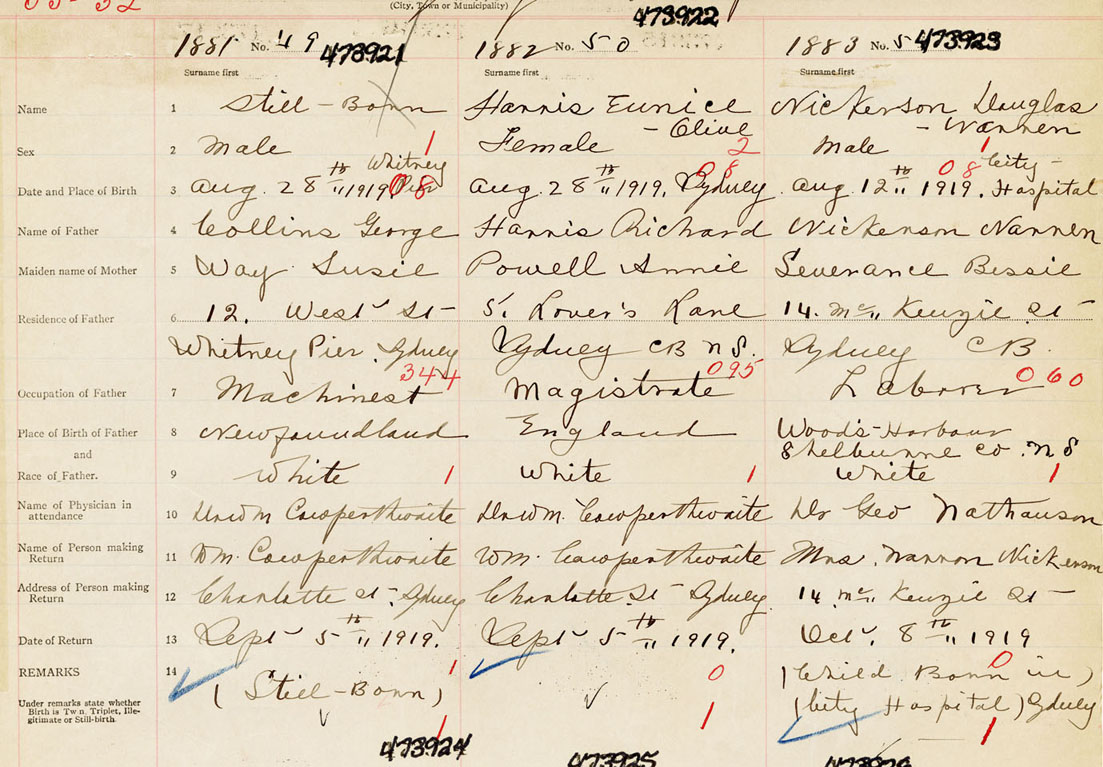 55-52
(City, Town or Municipality)
473922
1881 No. 49 473921 1882 No. 50 1883 No. 5 473923
Surname first Surname first Surname first
Name 1 Still-Born Harris Eunice Nickerson Douglas
- Olive - Warren
Sex 2 Male 1 Female 2 Male 1
Whitney City-
Date and Place of Birth 3 Aug. 28th 1919. Pier 08 Aug. 28th 1919. Sydney 08 Aug 12th 1919. 08 Hospital
Name of Father 4 Collins George Harris Richard Nickerson Warren
Maiden name of Mother 5 Way Susie Powell Annie Severance Bessie
Residence of Father 6 12. West St- 5. Rover's Lane 14. Mc Kenzie St-
Whitney Pier, Sydney Sydney CB N S. Sydney CB.
344 095 060
Occupation of Father 7 Machinest Magistrate Laborer
Place of Birth of Father 8 Newfoundland England Woods-Harbour
and Shelburne Co. N S
Race of Father. 9 White 1 White 1 White 1
Name of Physician in
attendance 10 Dr Wm Cowperthwaite Dr Wm. Cowperthwaite Dr Geo Nathanson
Name of Person making
Return 11 Wm. Cowperthwaite Wm. Cowperthwaite Mrs. Warren Nickerson
Address of Person making
Return 12 Charlotte St- Sydney Charlotte St- Sydney. 14 Mc Kenzie St-
Date of Return 13 Sept 5th 1919. Sept 5th 1919. Oct. 8th 1919
REMARKS 14 1 0 0
(Still-Born) (Child Born in)
Under remarks state whether
Birth is Twin, Triplet, Ille-
gitimate or Still-birth. (City Hospital) Sydney
1 1 1
473924 473925 473926